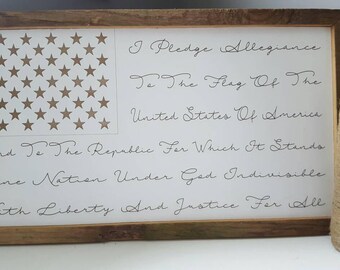 I Pledge Allegiance
To The Flag Of The
United States Of America
And To The Republic For Which It Stands
One Nation Under God Indivisible
With Liberty And Justice For All